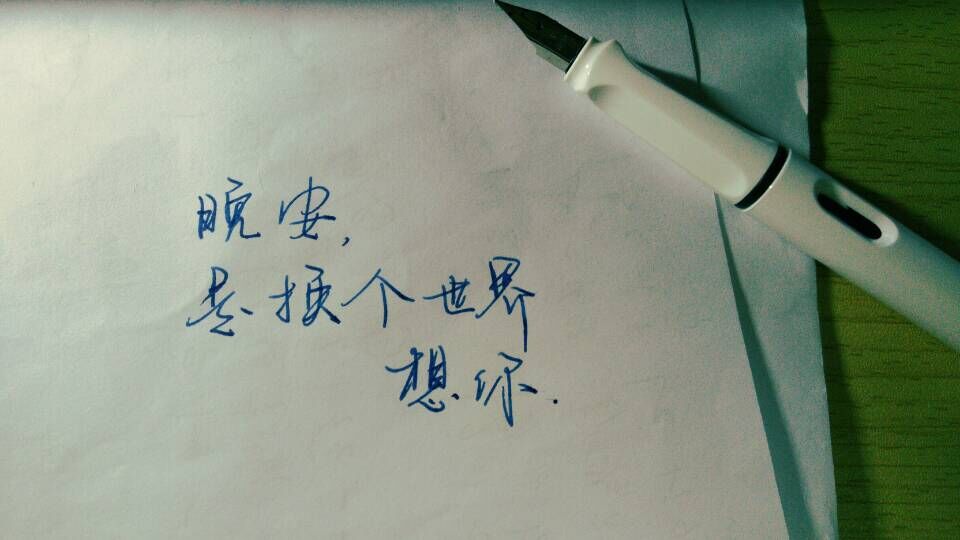 晚安,
是换个世界
想你.